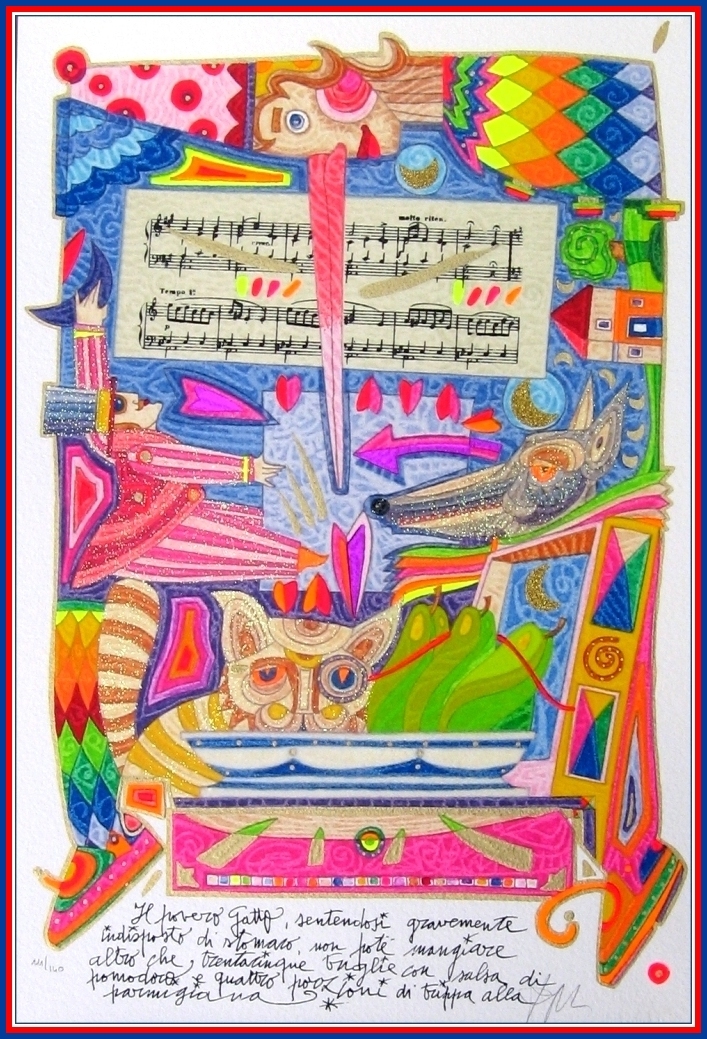 molto riten.
Tempo I?
p
Il povero Gatto, sentendosi gravemente
indisposto di stomaco, non poté mangiare
altro che trentacinque triglie con salsa di
/140
pomodoro e quattro porzioni di trippa alla
parmigiana